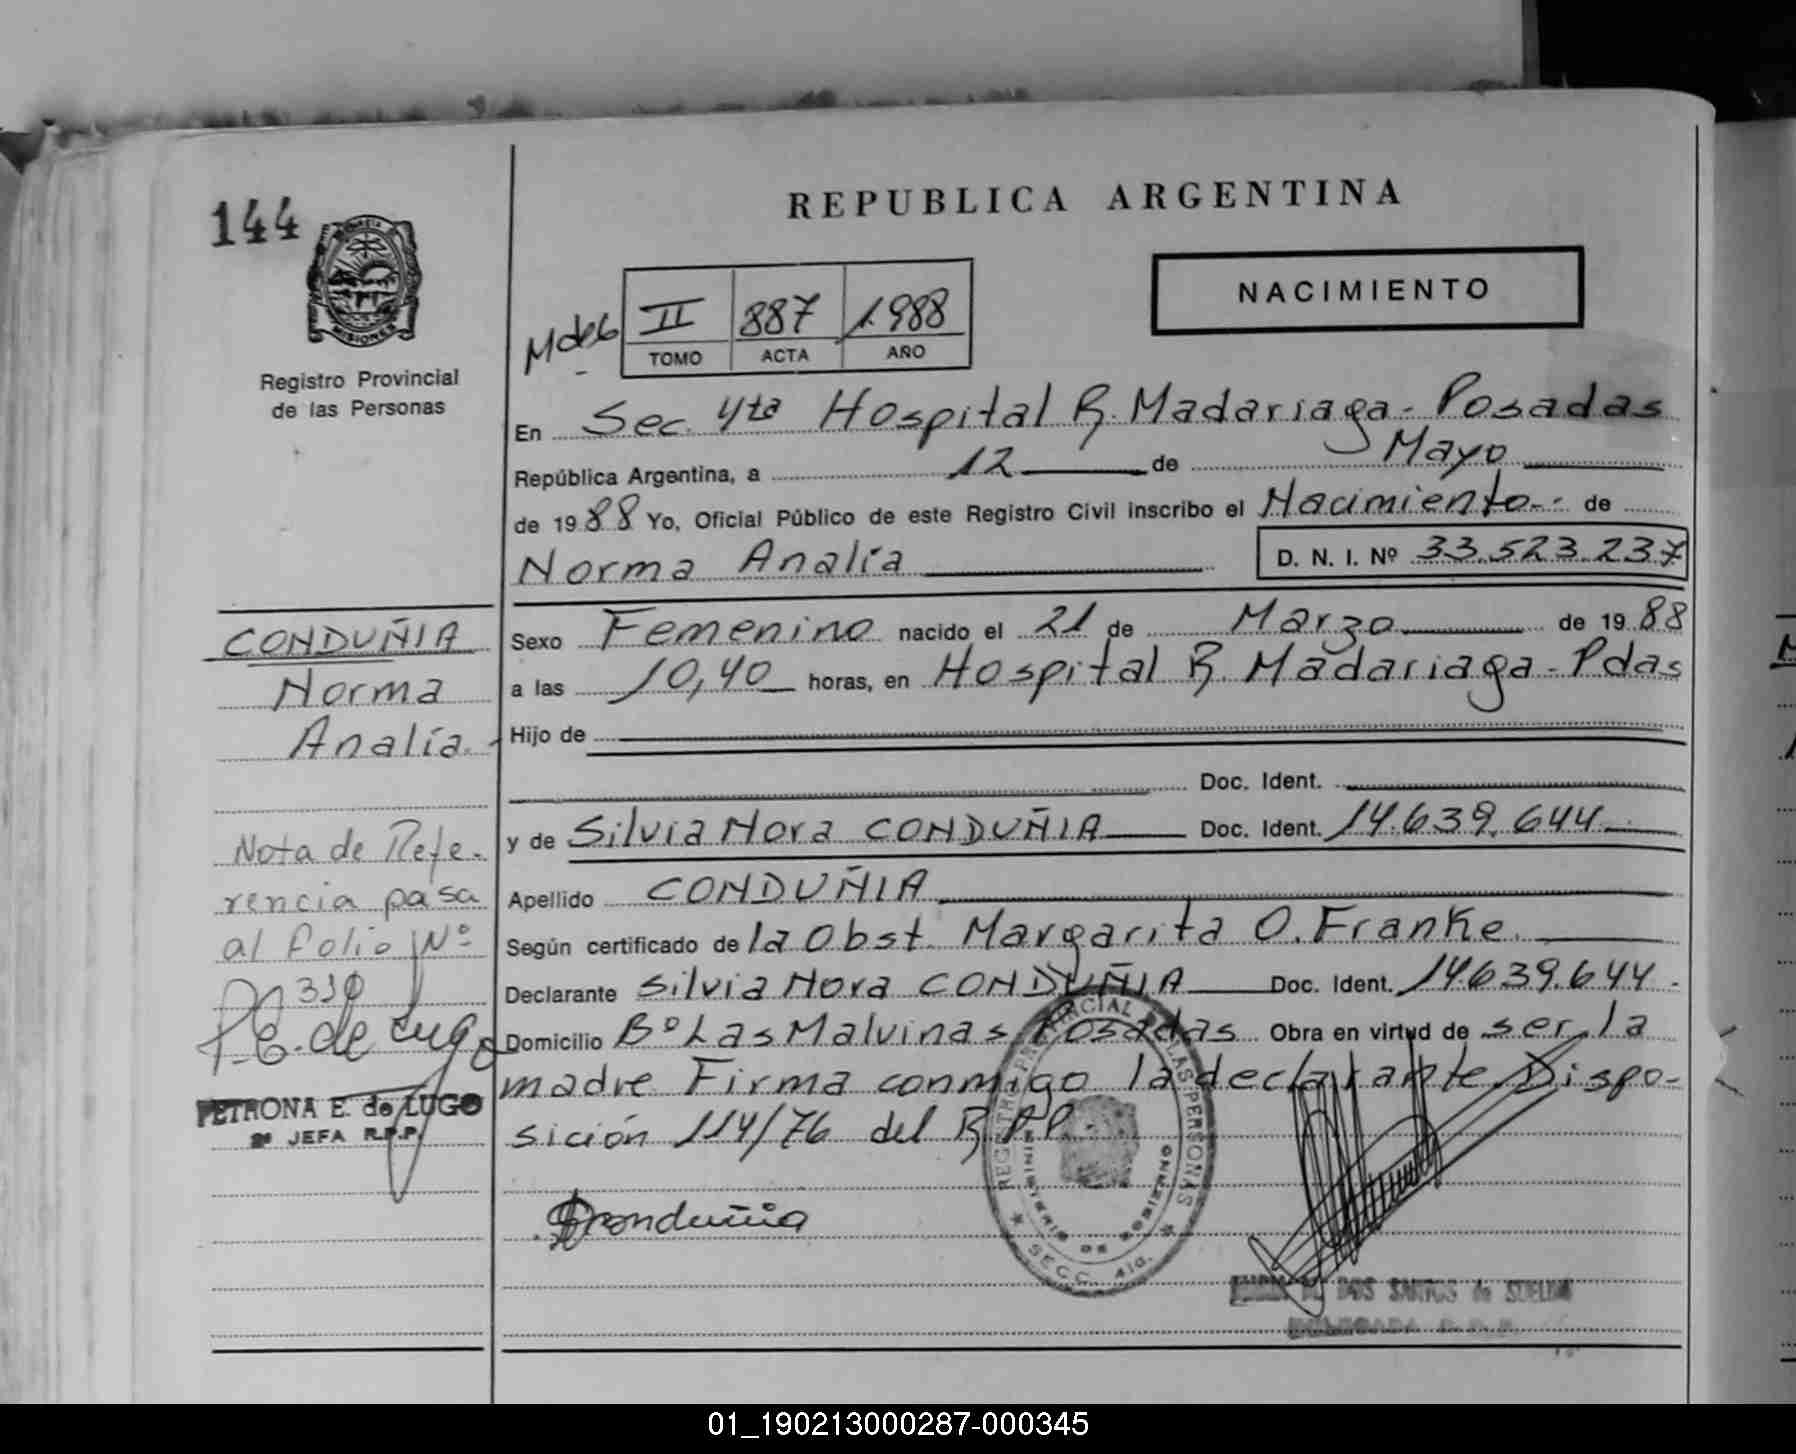 144
REPUBLICA ARGENTINA
NACIMIENTO
MISIONES
Registro Provincial
de las Personas
II 887 1988
TOMO ACTA AÑO
En Sec. 4ta Hospital R. Madariaga - Posadas
República Argentina, a 12 de Mayo
de 1988 Yo, Oficial Público de este Registro Civil inscribo el Nacimiento.- de
Norma Analía D. N. I. Nº 33.523.237
Sexo Femenino nacido el 21 de Marzo de 1988
a las 10,40 horas, en Hospital R. Madariaga - Pdas
Hijo de
Doc. Ident.
y de Silvia Nora CONDUÑIA Doc. Ident. 14.639.644
Apellido CONDUÑIA
Según certificado de la Obst. Margarita O. Franke.
Declarante Silvia Nora CONDUÑIA Doc. Ident. 14.639.644.
Domicilio Bº Las Malvinas Posadas Obra en virtud de ser la
madre Firma conmigo la declarante Dispo-
sición 114/76 del R.P.P.
CONDUÑIA
Norma
Analía.
Nota de Refe-
rencia pasa
al folio Nº
330
P. E. de Lugo
PETRONA E. de LUGO
2ª JEFA R.P.P.
Conduñia
REGISTRO PROVINCIAL DE LAS PERSONAS
MINISTERIO DE GOBIERNO
SECC. 4ta.
DOS SANTOS de
DELEGADA R.P.P.
01_190213000287-000345